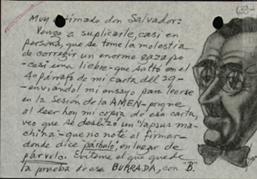 Muy estimado don Salvador:
Vengo a suplicarle, casi en
persona, que se tome la molestia
de corregir un enorme gazapo
-casi una liebre- que saltó en el
4º párrafo de mi carta del 29-
-enviando mi ensayo para leerse
en la Sesión de la AMEN- porque
al leer hoy mi copia de esa carta,
veo que se deslizó un "lapsus ma-
china"- que no noté al firmar-
donde dice párbolo, en lugar de
párvulo. Siénteme el que quede
la prueba de esa BURRADA, con B.